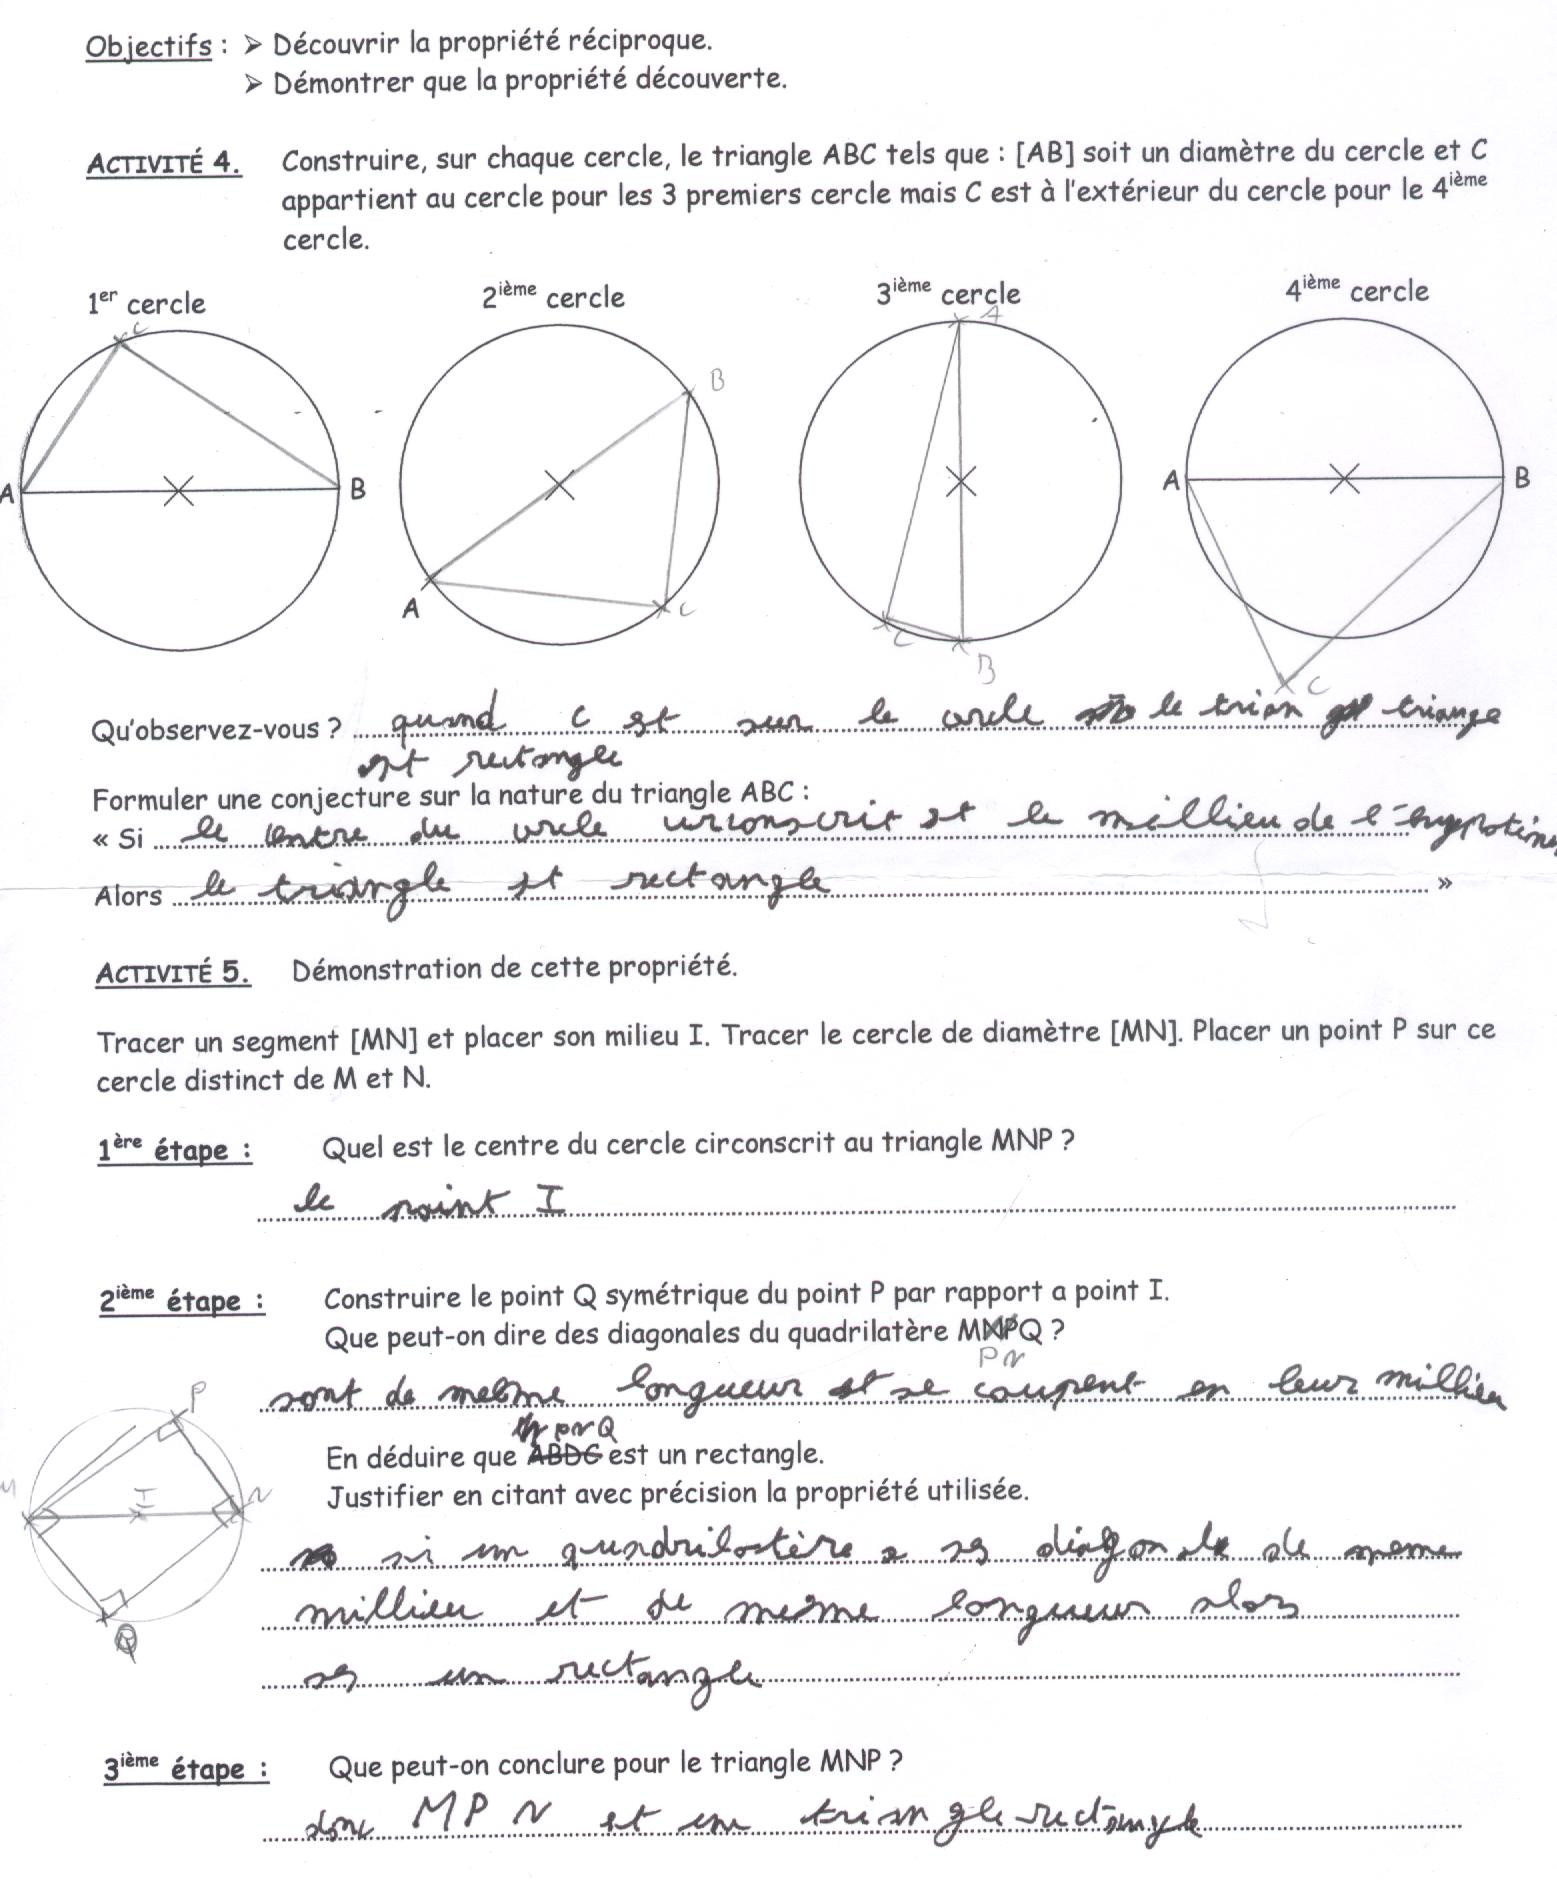 Objectifs : ➢ Découvrir la propriété réciproque.
➢ Démontrer que la propriété découverte.
ACTIVITÉ 4. Construire, sur chaque cercle, le triangle ABC tels que : [AB] soit un diamètre du cercle et C
appartient au cercle pour les 3 premiers cercle mais C est à l'extérieur du cercle pour le 4ième
cercle.
1er cercle 2ième cercle 3ième cercle 4ième cercle
C A
B
A B A B
A C
C B C
Qu'observez-vous ? quand C est sur le cercle le trian triange
est rectangle
Formuler une conjecture sur la nature du triangle ABC :
« Si le centre du cercle circonscrit est le millieu de l'hyppoténu
Alors le triangle est rectangle »
ACTIVITÉ 5. Démonstration de cette propriété.
Tracer un segment [MN] et placer son milieu I. Tracer le cercle de diamètre [MN]. Placer un point P sur ce
cercle distinct de M et N.
1ère étape : Quel est le centre du cercle circonscrit au triangle MNP ?
le point I
2ième étape : Construire le point Q symétrique du point P par rapport a point I.
Que peut-on dire des diagonales du quadrilatère MNPQ ?
PN
sont de melme longueur et se coupent en leur millieu
P
M I N
Q
pnQ
En déduire que ABDC est un rectangle.
Justifier en citant avec précision la propriété utilisée.
si un quadrilatère a ses diagonale de meme
millieu et de mesme longueur alors
ses un rectangle
3ième étape : Que peut-on conclure pour le triangle MNP ?
donc MPN est un triangle rectangle